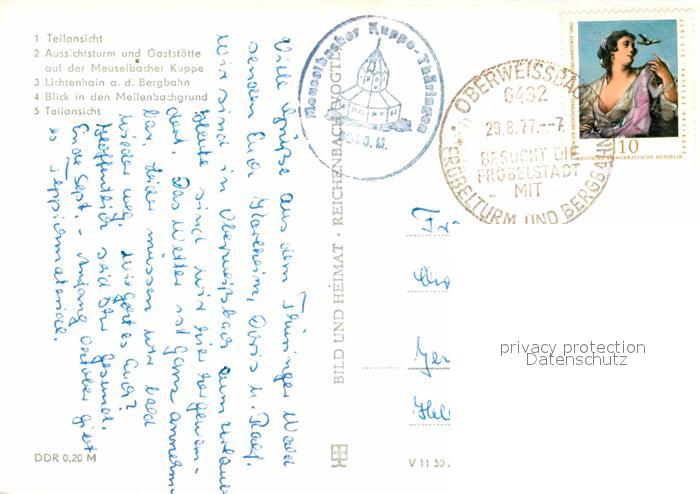 1 Teilansicht
2 Aussichtsturm und Gaststätte
auf der Meuselbacher Kuppe
3 Lichtenhain a. d. Bergbahn
4 Blick in den Mellenbachgrund
5 Teilansicht
Meuselbacher Kuppe-Thüringen
OBERWEISSBACH
6432
29.8.77.--7
BESUCHT DIE
FRÖBELSTADT
MIT
FRÖBELTURM UND BERGBAHN
10
DEUTSCHE DEMOKRATISCHE REPUBLIK
Viele Grüße aus dem Thüringer Wald
senden Euch Karlheinz, Doris u. Ralf.
Wir sind in Oberweißbach zum Urlaub.
Heute sind wir hier hergewan-
dert. Das Wetter ist ganz annehm-
bar, leider müssen wir bald
wieder weg. Wie geht es Euch?
Hoffentlich seid Ihr gesund.
Ende Sept. - Anfang Oktober gibt
es Teppichmaterial.
BILD UND HEIMAT · REICHENBACH (VOGTL)
DDR 0,20 M
V 11 50
privacy protection
Datenschutz